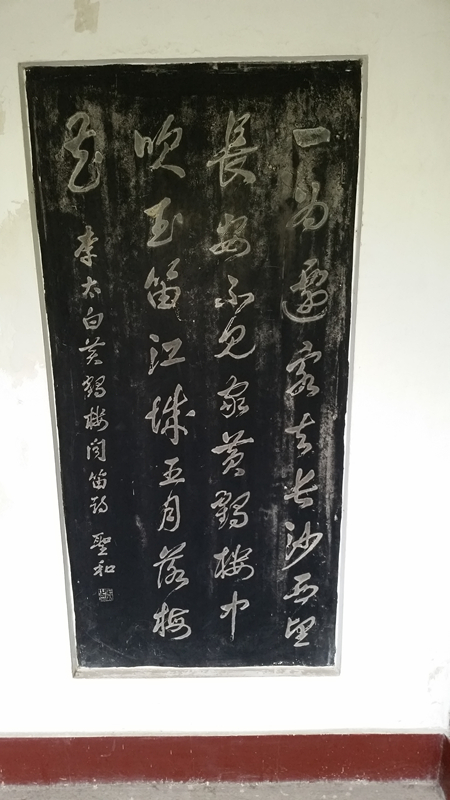 一为遷客去长沙西望
長安不見家黄鶴楼中
吹玉笛江城五月落梅
花
李太白黄鹤楼闻笛诗 聖和